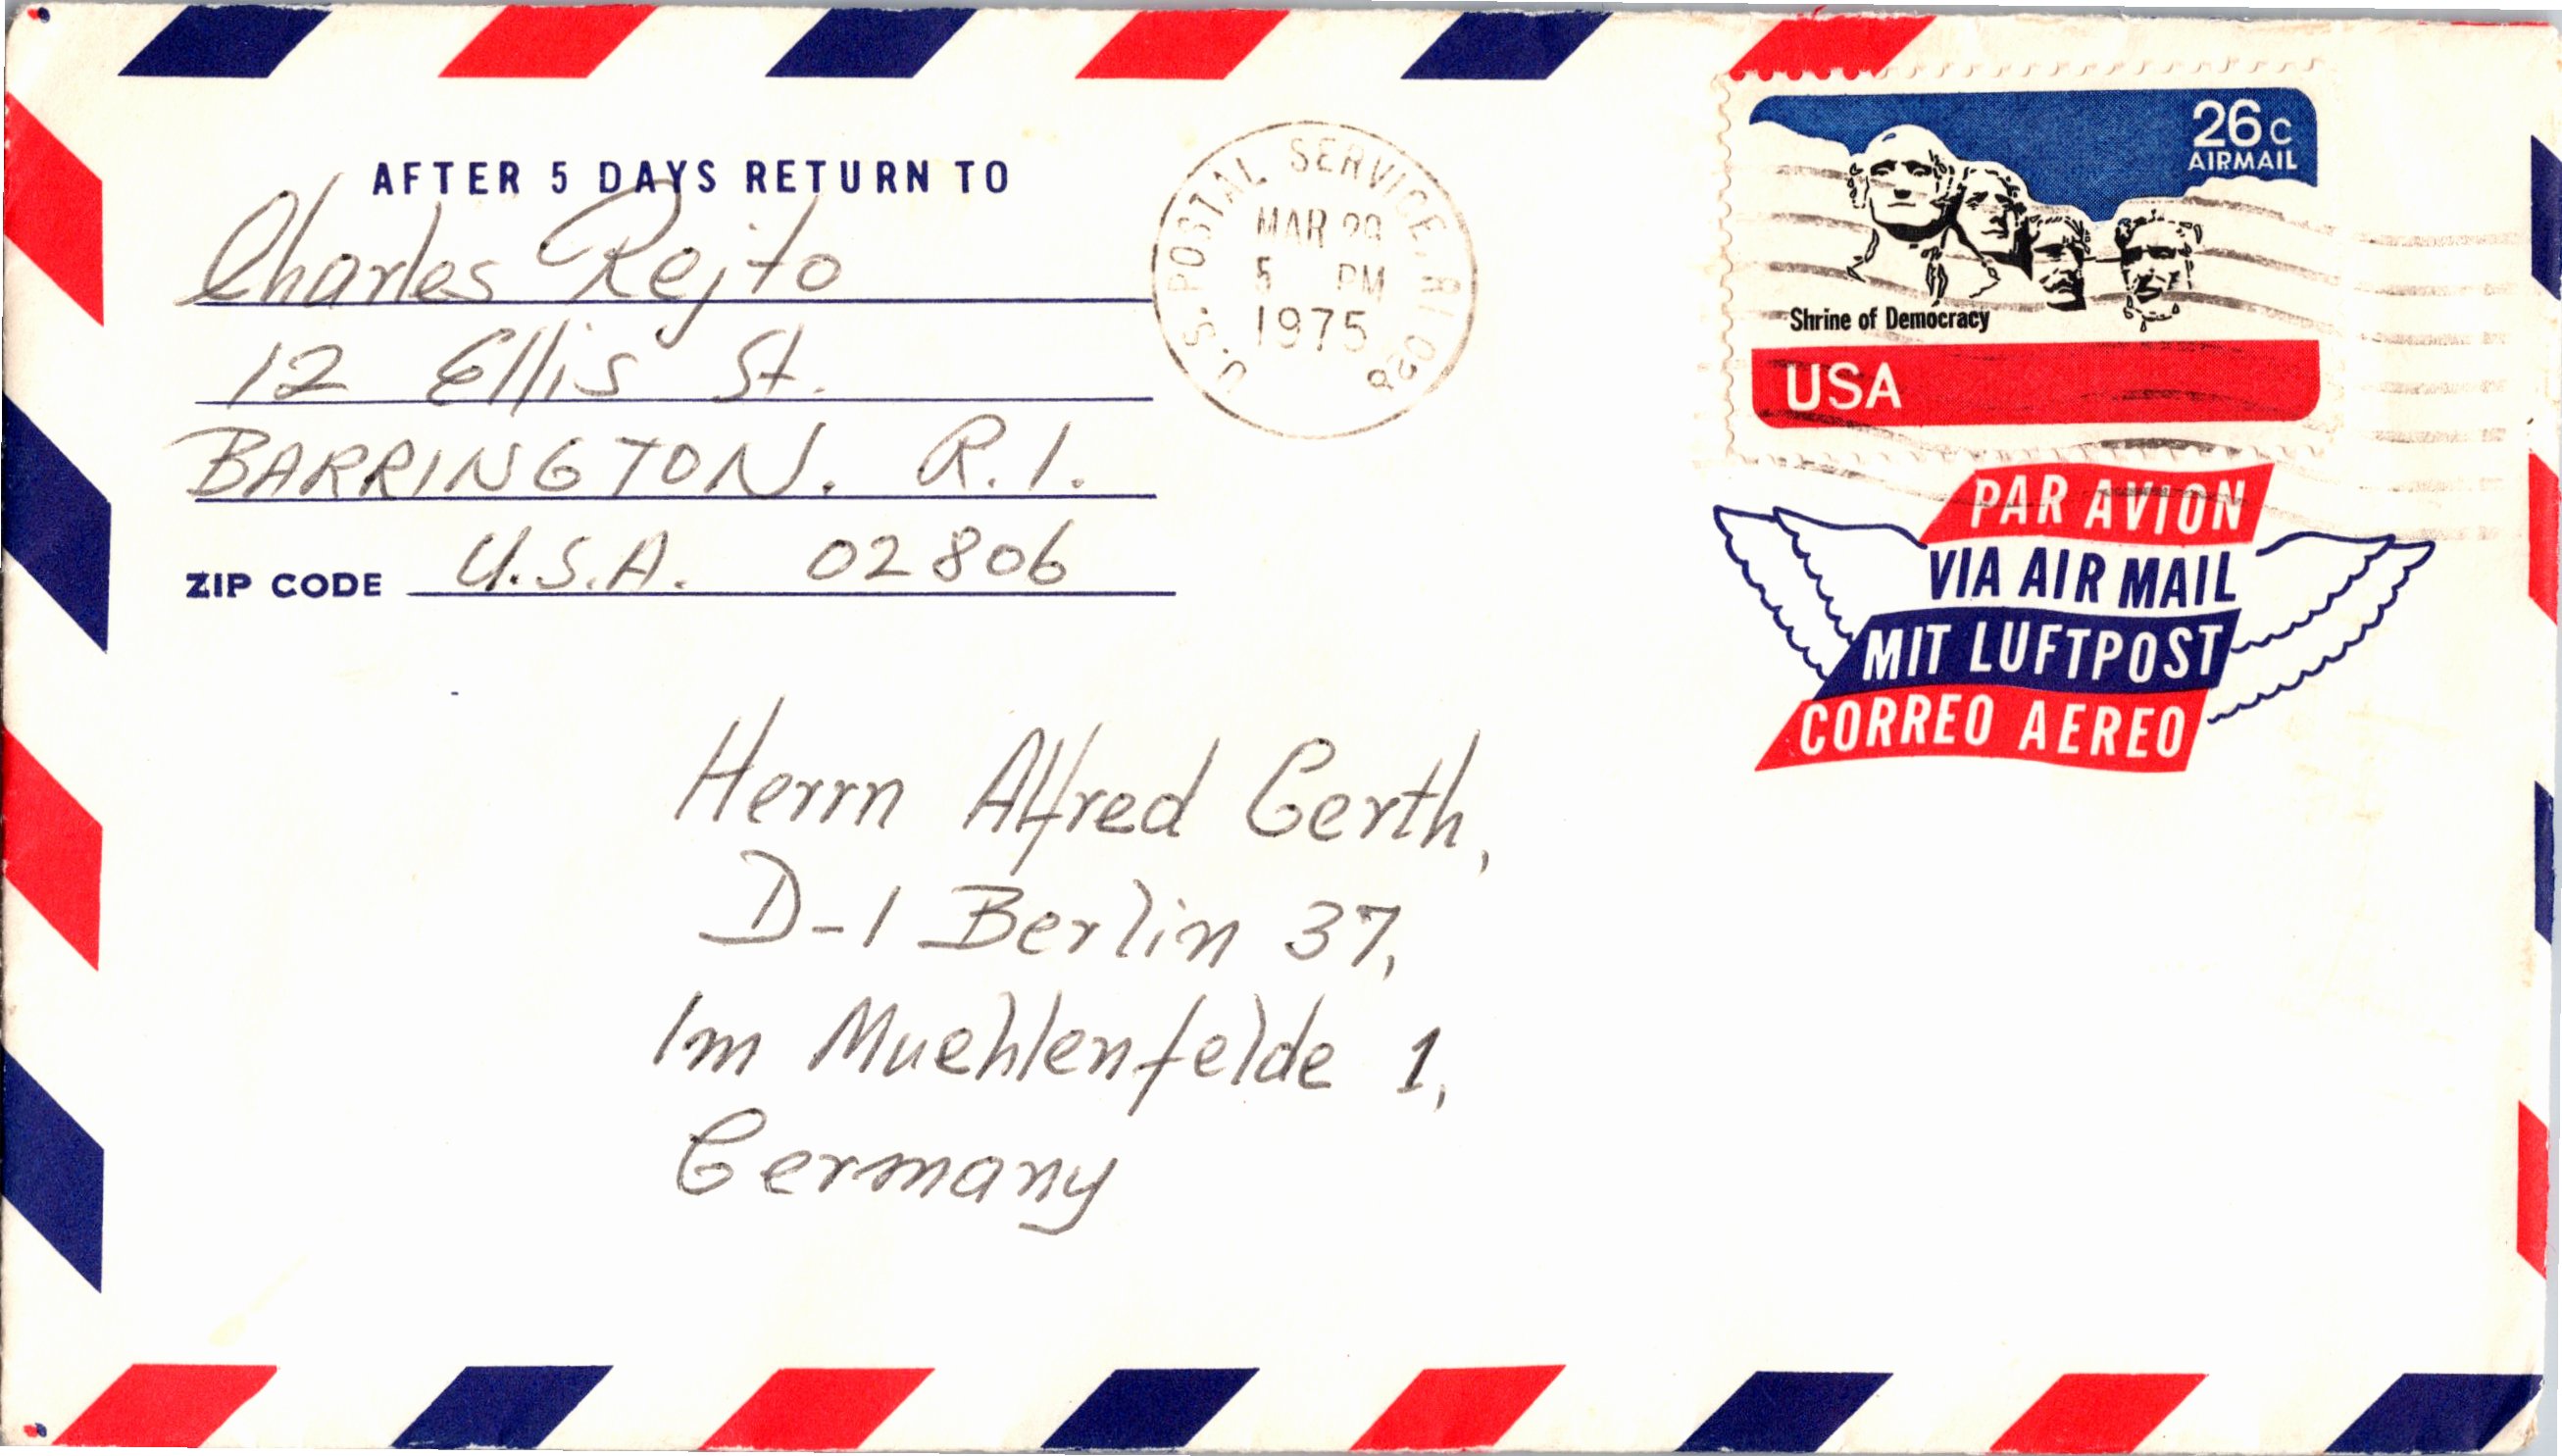 AFTER 5 DAYS RETURN TO
Charles Rejto
12 Ellis St.
BARRINGTON. R.I.
U.S.A. 02806
ZIP CODE
U.S. POSTAL SERVICE, RI 028
MAR 29
5 PM
1975
26c
AIRMAIL
Shrine of Democracy
USA
PAR AVION
VIA AIR MAIL
MIT LUFTPOST
CORREO AEREO
Herrn Alfred Gerth,
D-1 Berlin 37,
Im Muehlenfelde 1,
Germany